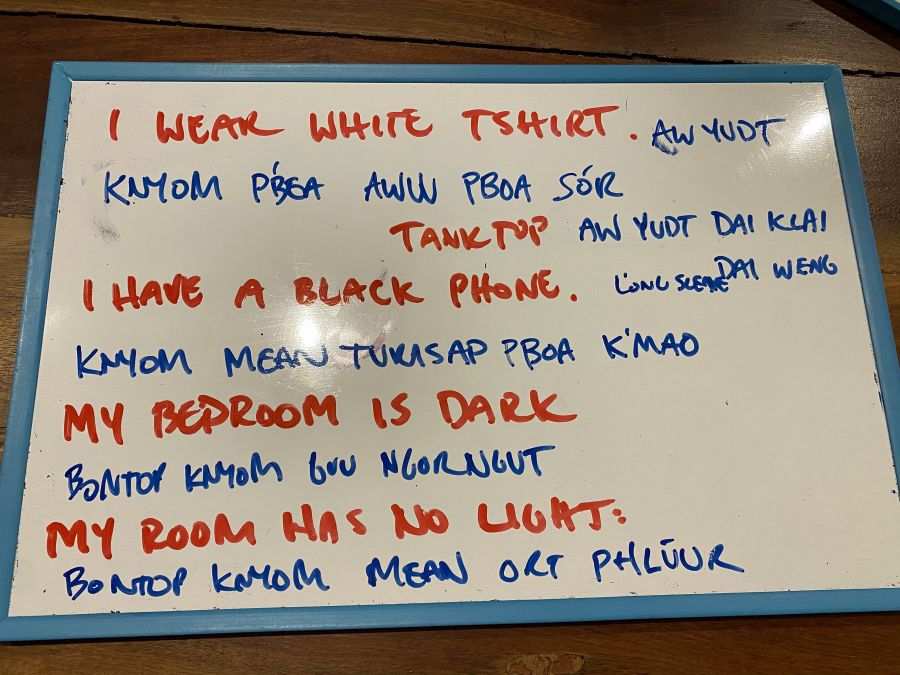 I WEAR WHITE TSHIRT. AW YUDT
KNYOM P'BEA AWW PBOA SÓR
TANKTOP AW YUDT DAI KLAI
I HAVE A BLACK PHONE. LONG SLEEVE DAI WENG
KNYOM MEAN TURISAP PBOA K'MAO
MY BEDROOM IS DARK
BONTOP KNYOM NGORNGUT
MY ROOM HAS NO LIGHT:
BONTOP KNYOM MEAN ORT PHLŪUR